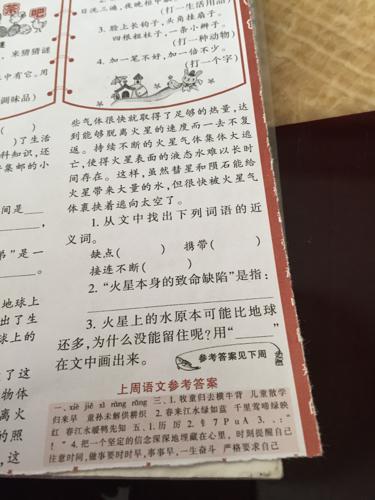 茶吧
谜
来猜猜谜
中有它。用
调味品)
日洗三浦,夜晚恒中
(打一生活用品)
3. 脸上长钩子,头角挂扇子。
四根粗柱子,一条小辫子。
(打一种动物)
4. 加一笔不好,加一倍不少。
(打一个字)
( )
)了生活
科知识,还
集邮的小
间是
。
弟”是一
。
地球上
出了生
球上的
了这
物体
离火
的照
,这
些气体很快就取得了足够的热量,达
到能够脱离火星的速度而一去不复
返。持续不断的火星气体集体大逃
亡,使得火星表面的液态水难以长时
间存在。这样,虽然彗星和陨石能给
火星带来大量的水,但很快被火星气
体裹挟着逃向太空了。
1. 从文中找出下列词语的近
义词。
缺点( ) 携带( )
接连不断( )
2. “火星本身的致命缺陷”是指:
3. 火星上的水原本可能比地球
还多,为什么没能留住呢?用“——”
在文中画出来。
参考答案见下周
上周语文参考答案
一、xiè jié xì rūng rōng 三、1. 牧童归去横牛背 儿童散学
归来早 童孙未解供耕织 2. 春来江水绿如蓝 千里莺啼绿映
红 春江水暖鸭先知 五、1. 历 厉 2. 7 P u A 3. ,:“
!” 4. 把一个坚定的信念深深地埋藏在心里,时刻提醒自己
注意时间,做事要时时早,事事早,一生奋斗 严格要求自己